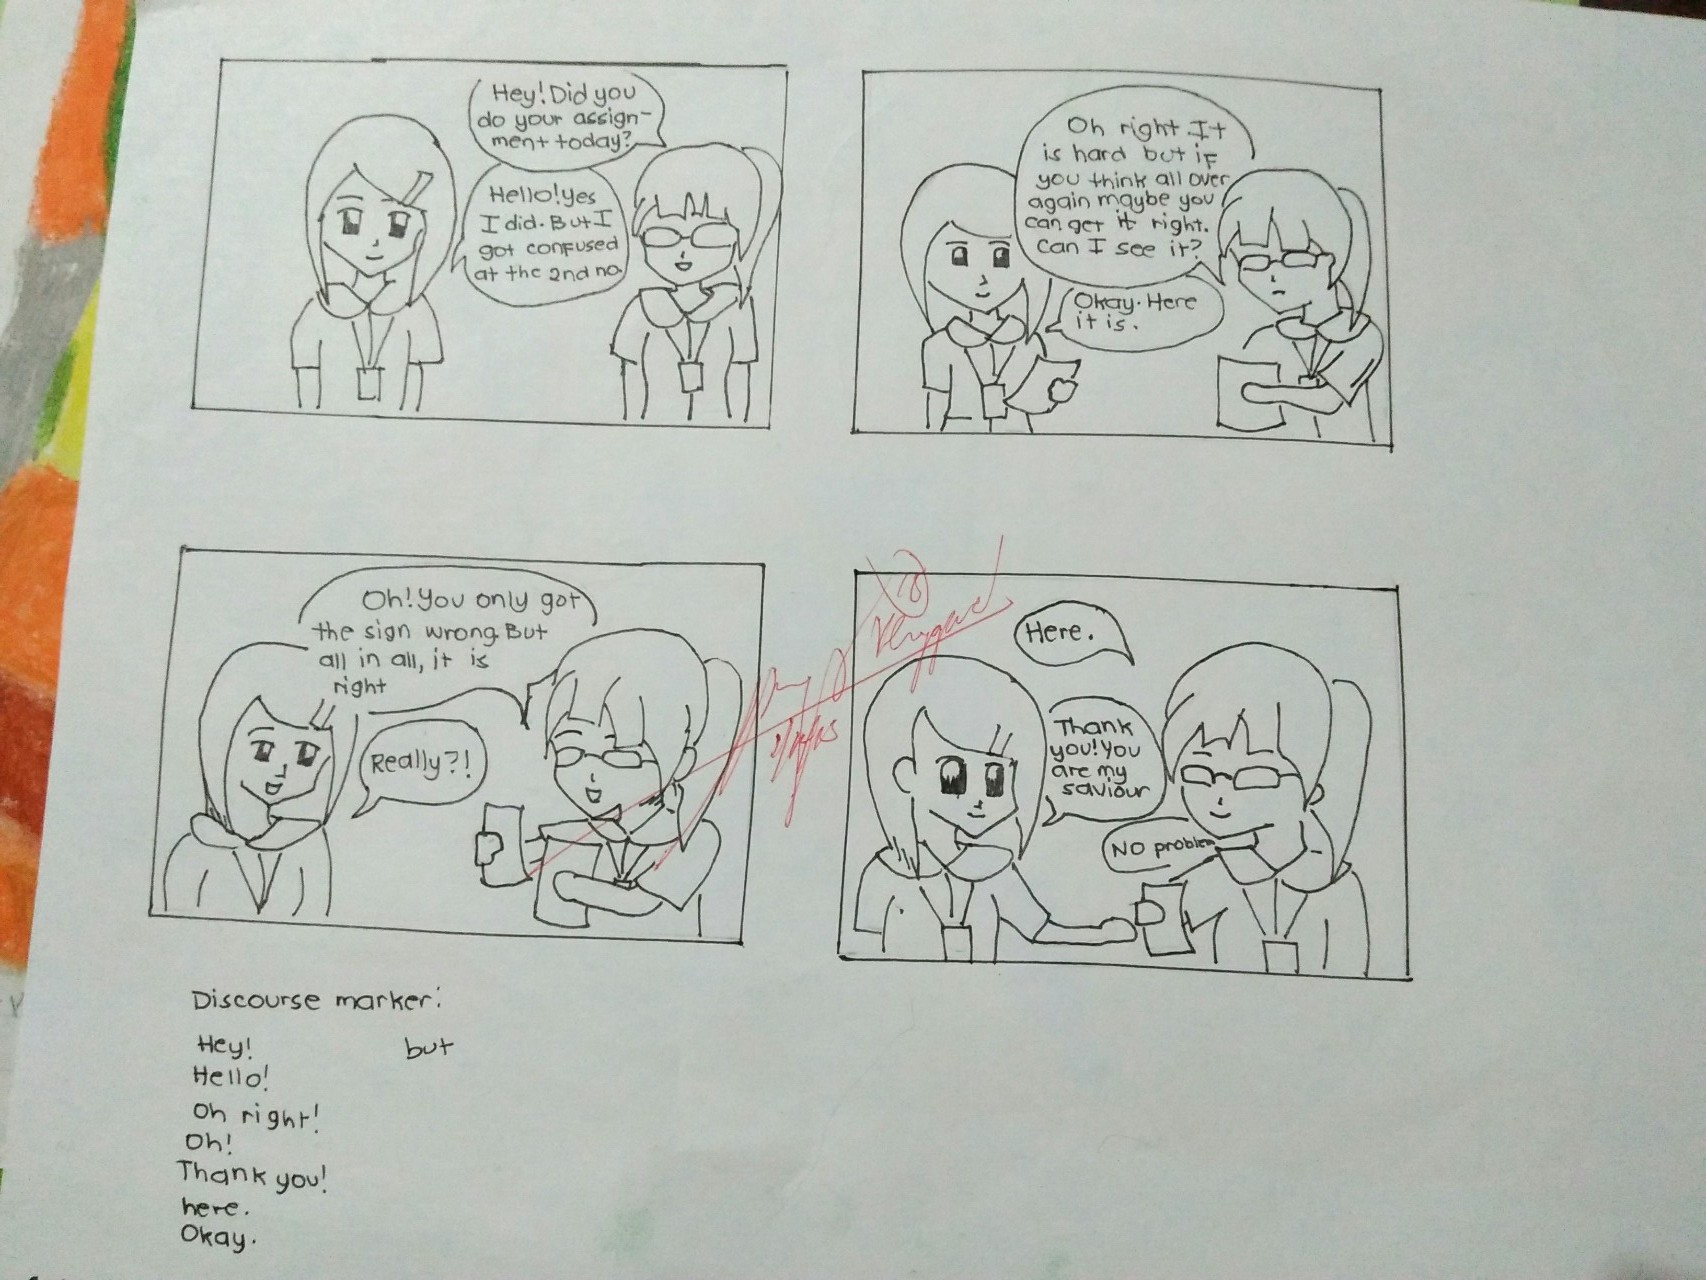 Hey! Did you
do your assign-
ment today?
Hello! Yes
I did. But I
got confused
at the 2nd no.
Oh right. It
is hard but if
you think all over
again maybe you
can get it right.
Can I see it?
Okay. Here
it is.
Oh! You only got
the sign wrong. But
all in all, it is
right
Really?!
Here.
Thank
you! You
are my
saviour
No problem
Very good
Discourse marker:
Hey! but
Hello!
Oh right!
Oh!
Thank you!
here.
Okay.